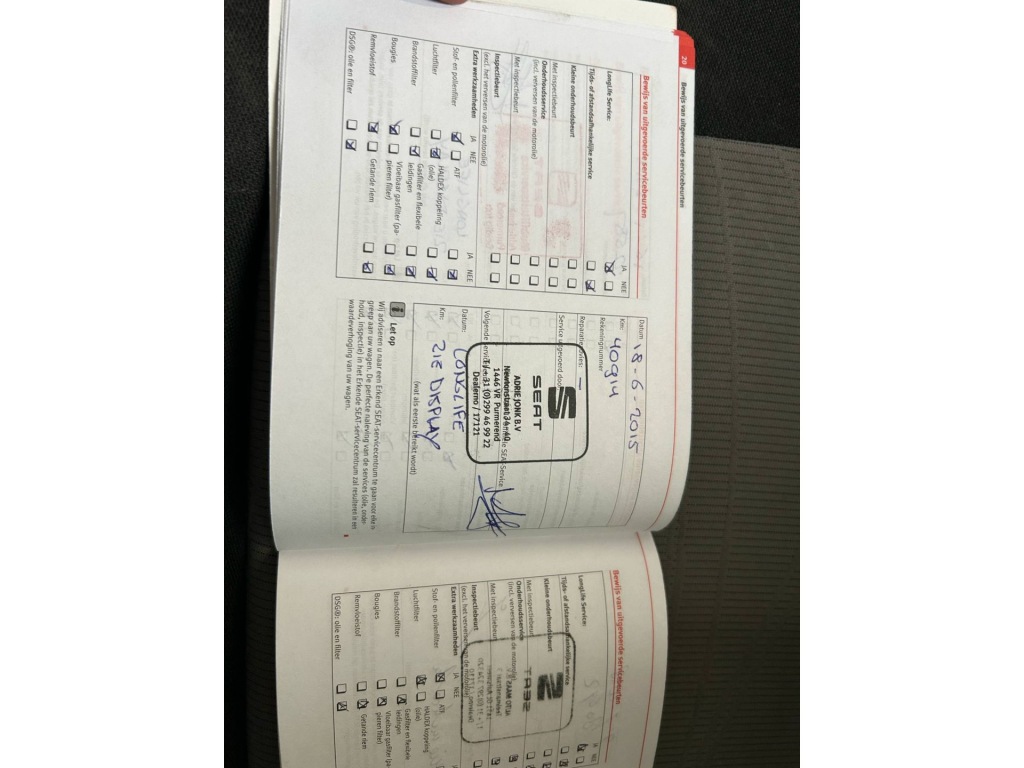 20
Bewijs van uitgevoerde servicebeurten
Bewijs van uitgevoerde servicebeurten
JA NEE
LongLife Service:
Tijds- of afstandsafhankelijke service
Kleine onderhoudsbeurt
Met inspectiebeurt
Onderhoudsservice
(incl. verversen van de motorolie)
Met inspectiebeurt
Inspectiebeurt
(excl. het verversen van de motorolie)
Extra werkzaamheden
JA NEE
JA NEE
Stof- en pollenfilter
ATF
Luchtfilter
HALDEX koppeling
(olie)
Brandstoffilter
Gasfilter en flexibele
leidingen
Bougies
Vloeibaar gasfilter (pa-
pieren filter)
Remvloeistof
Getande riem
DSG®: olie en filter
Datum 18-6-2015
Km: 40914
Rekeningnummer
Reparatieadvies: -
Service uitgevoerd door
SEAT
ADRIE JONK B.V
1446 VR Purmerend
Tel +31 (0)299 46 99 22
Dealerno / 17121
Volgende service
Datum: LONGLIFE
Km: ZIE DISPLAY
(wat als eerste bereikt wordt)
Let op
Wij adviseren u naar een Erkend SEAT-servicecentrum te gaan voor elke in-
greep aan uw wagen. De perfecte naleving van de services (olie, onder-
houd, inspectie) in het Erkende SEAT-servicecentrum zal resulteren in en
waardeverhoging van uw wagen.
Bewijs van uitgevoerde servicebeurten
JA NEE
LongLife Service:
Tijds- of afstandsafhankelijke service
Kleine onderhoudsbeurt
Met inspectiebeurt
Onderhoudsservice
(incl. verversen van de motorolie)
Met inspectiebeurt
Inspectiebeurt
(excl. het verversen van de motorolie)
Extra werkzaamheden
JA NEE
Stof- en pollenfilter
ATF
Luchtfilter
HALDEX koppeling
(olie)
Brandstoffilter
Gasfilter en flexibele
leidingen
Bougies
Vloeibaar gasfilter (pa-
pieren filter)
Remvloeistof
Getande riem
DSG®: olie en filter